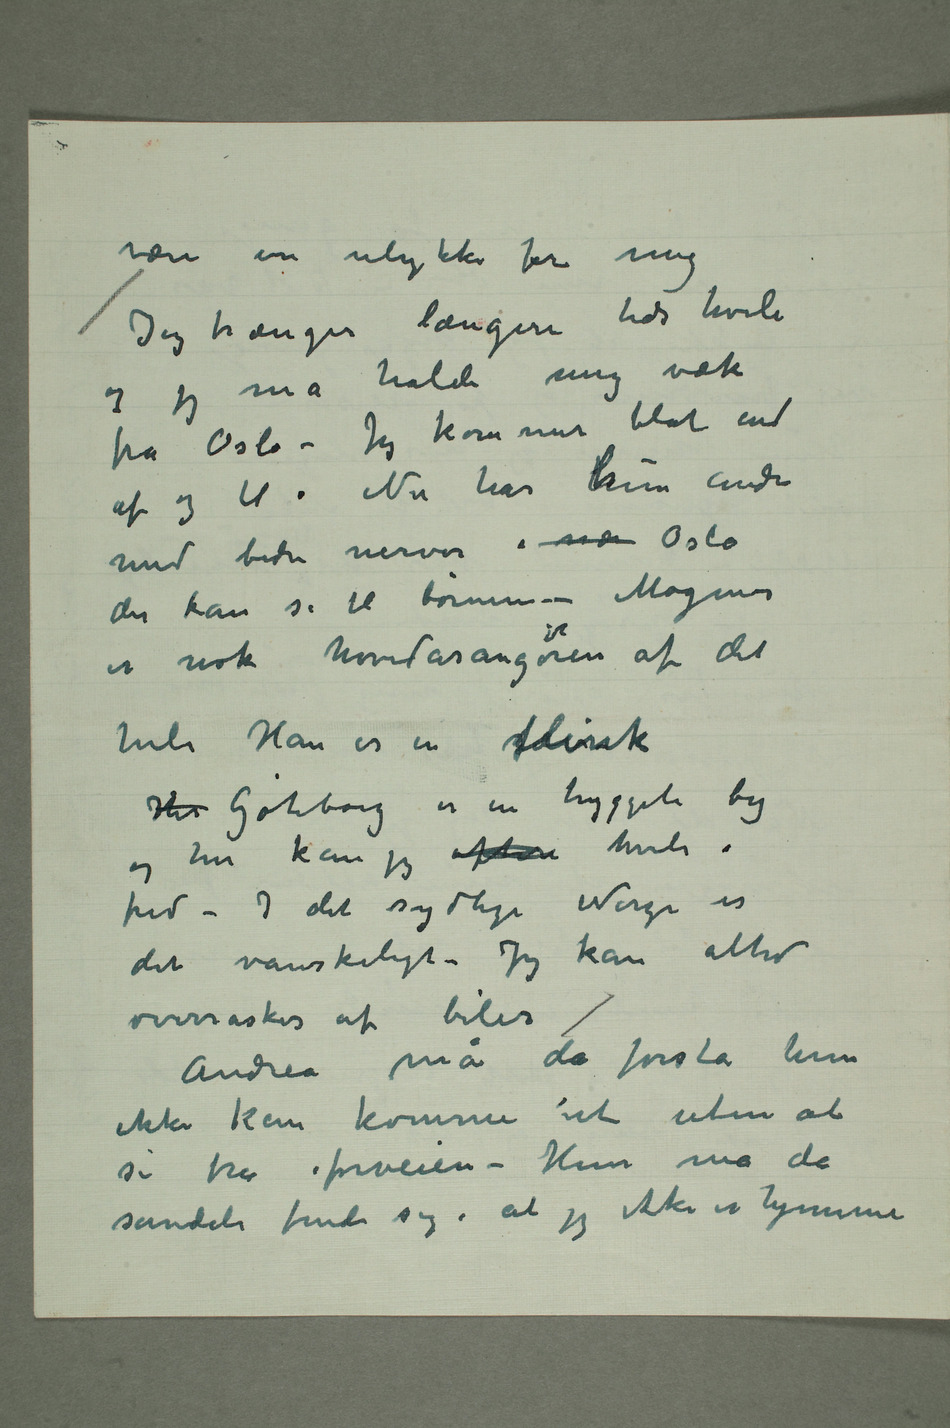 være en ulykke for mig
Jeg trænger længere tids hvile
og jeg må holde mig væk
fra Oslo – Jeg kommer blot ind
af og til. Nu har hun andre
med bedre nerver i nær Oslo
der kan se til børnene – Magnus
er nok hovedarangøren af det
hele Han er en flink
Her Gøteborg er en hyggele by
og her kan jeg oftere hvile i
fred – I det sydlige Norge er
det vanskeligt – Jeg kan altid
overraskes af biler
Andrea må da forstå hun
ikke kan komme ut uten at
si fra iforveien – Hun må da
sandele finde sig i at jeg ikke er hjemme